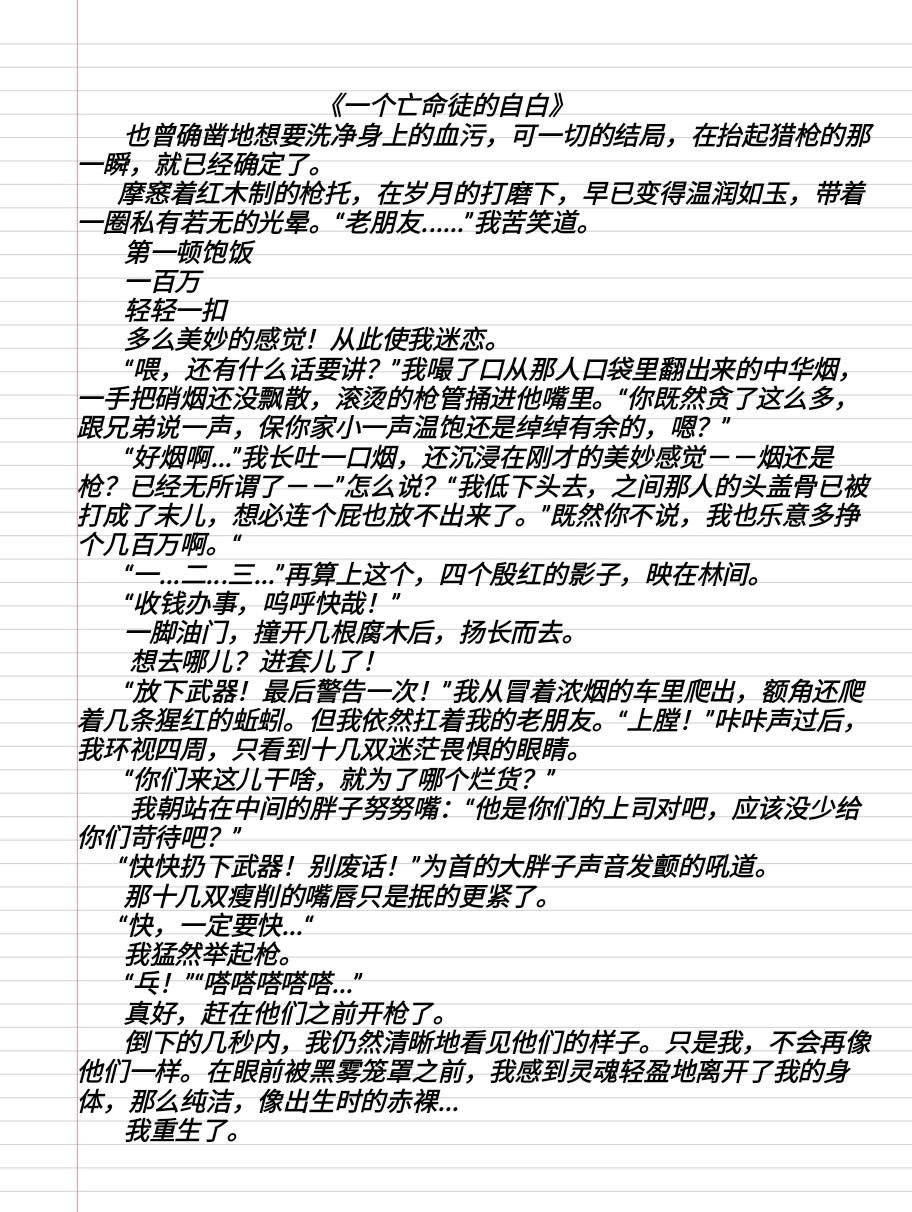 《一个亡命徒的自白》
也曾确凿地想要洗净身上的血污，可一切的结局，在抬起猎枪的那
一瞬，就已经确定了。
摩窸着红木制的枪托，在岁月的打磨下，早已变得温润如玉，带着
一圈私有若无的光晕。“老朋友……”我苦笑道。
第一顿饱饭
一百万
轻轻一扣
多么美妙的感觉！从此使我迷恋。
“喂，还有什么话要讲？”我嘬了口从那人口袋里翻出来的中华烟，
一手把硝烟还没飘散，滚烫的枪管捅进他嘴里。“你既然贪了这么多，
跟兄弟说一声，保你家小一声温饱还是绰绰有余的，嗯？”
“好烟啊…”我长吐一口烟，还沉浸在刚才的美妙感觉－－烟还是
枪？已经无所谓了－－”怎么说？“我低下头去，之间那人的头盖骨已被
打成了末儿，想必连个屁也放不出来了。”既然你不说，我也乐意多挣
个几百万啊。“
“一…二…三…”再算上这个，四个殷红的影子，映在林间。
“收钱办事，呜呼快哉！”
一脚油门，撞开几根腐木后，扬长而去。
想去哪儿？进套儿了！
“放下武器！最后警告一次！”我从冒着浓烟的车里爬出，额角还爬
着几条猩红的蚯蚓。但我依然扛着我的老朋友。“上膛！”咔咔声过后，
我环视四周，只看到十几双迷茫畏惧的眼睛。
“你们来这儿干啥，就为了哪个烂货？”
我朝站在中间的胖子努努嘴：“他是你们的上司对吧，应该没少给
你们苛待吧？”
“快快扔下武器！别废话！”为首的大胖子声音发颤的吼道。
那十几双瘦削的嘴唇只是抿的更紧了。
“快，一定要快…“
我猛然举起枪。
“乓！”“嗒嗒嗒嗒嗒…”
真好，赶在他们之前开枪了。
倒下的几秒内，我仍然清晰地看见他们的样子。只是我，不会再像
他们一样。在眼前被黑雾笼罩之前，我感到灵魂轻盈地离开了我的身
体，那么纯洁，像出生时的赤裸…
我重生了。